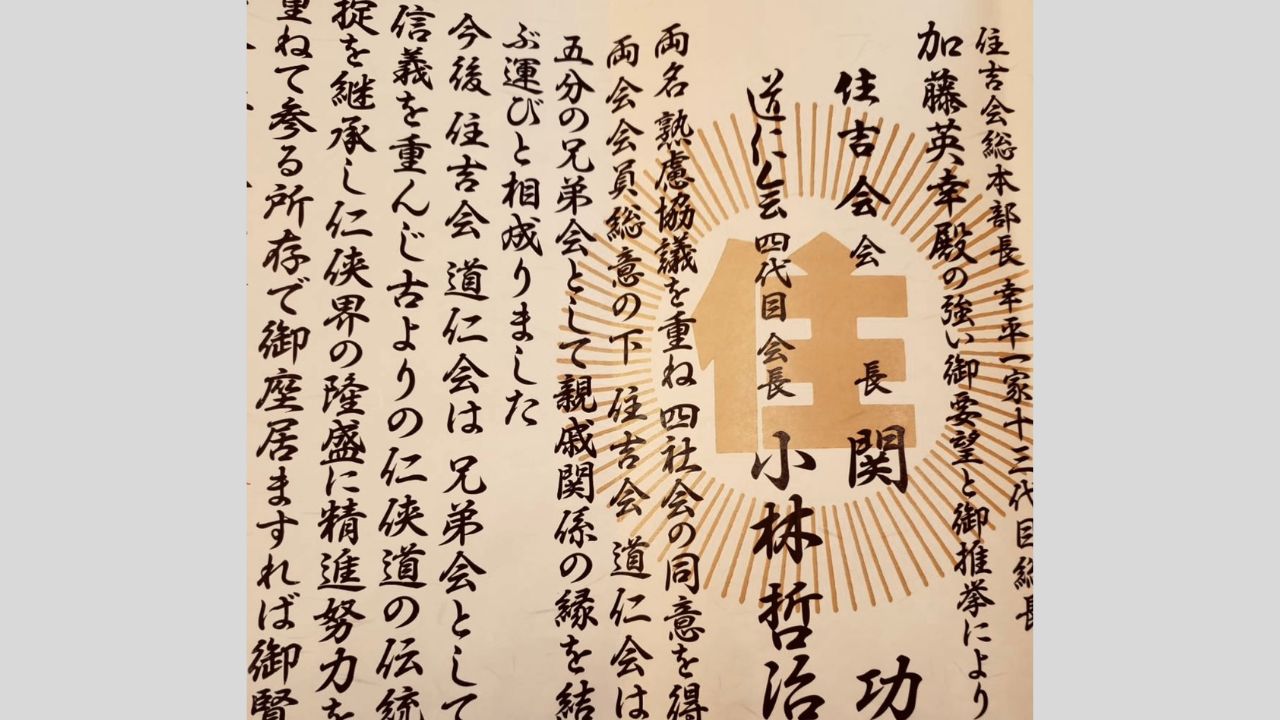 住吉会総本部長 幸平一家十三代目総長
加藤英幸殿の強い御要望と御推挙により
住吉会会長 関 功
道仁会四代目会長 小林哲治
両名熟慮協議を重ね 四社会の同意を得
両会会員総意の下 住吉会 道仁会は
五分の兄弟会として親戚関係の縁を結
ぶ運びと相成りました
今後 住吉会 道仁会は 兄弟会として
信義を重んじ古よりの仁侠道の伝統
掟を継承し仁侠界の隆盛に精進努力を
重ねて参る所存で御座居ますれば御賢
住